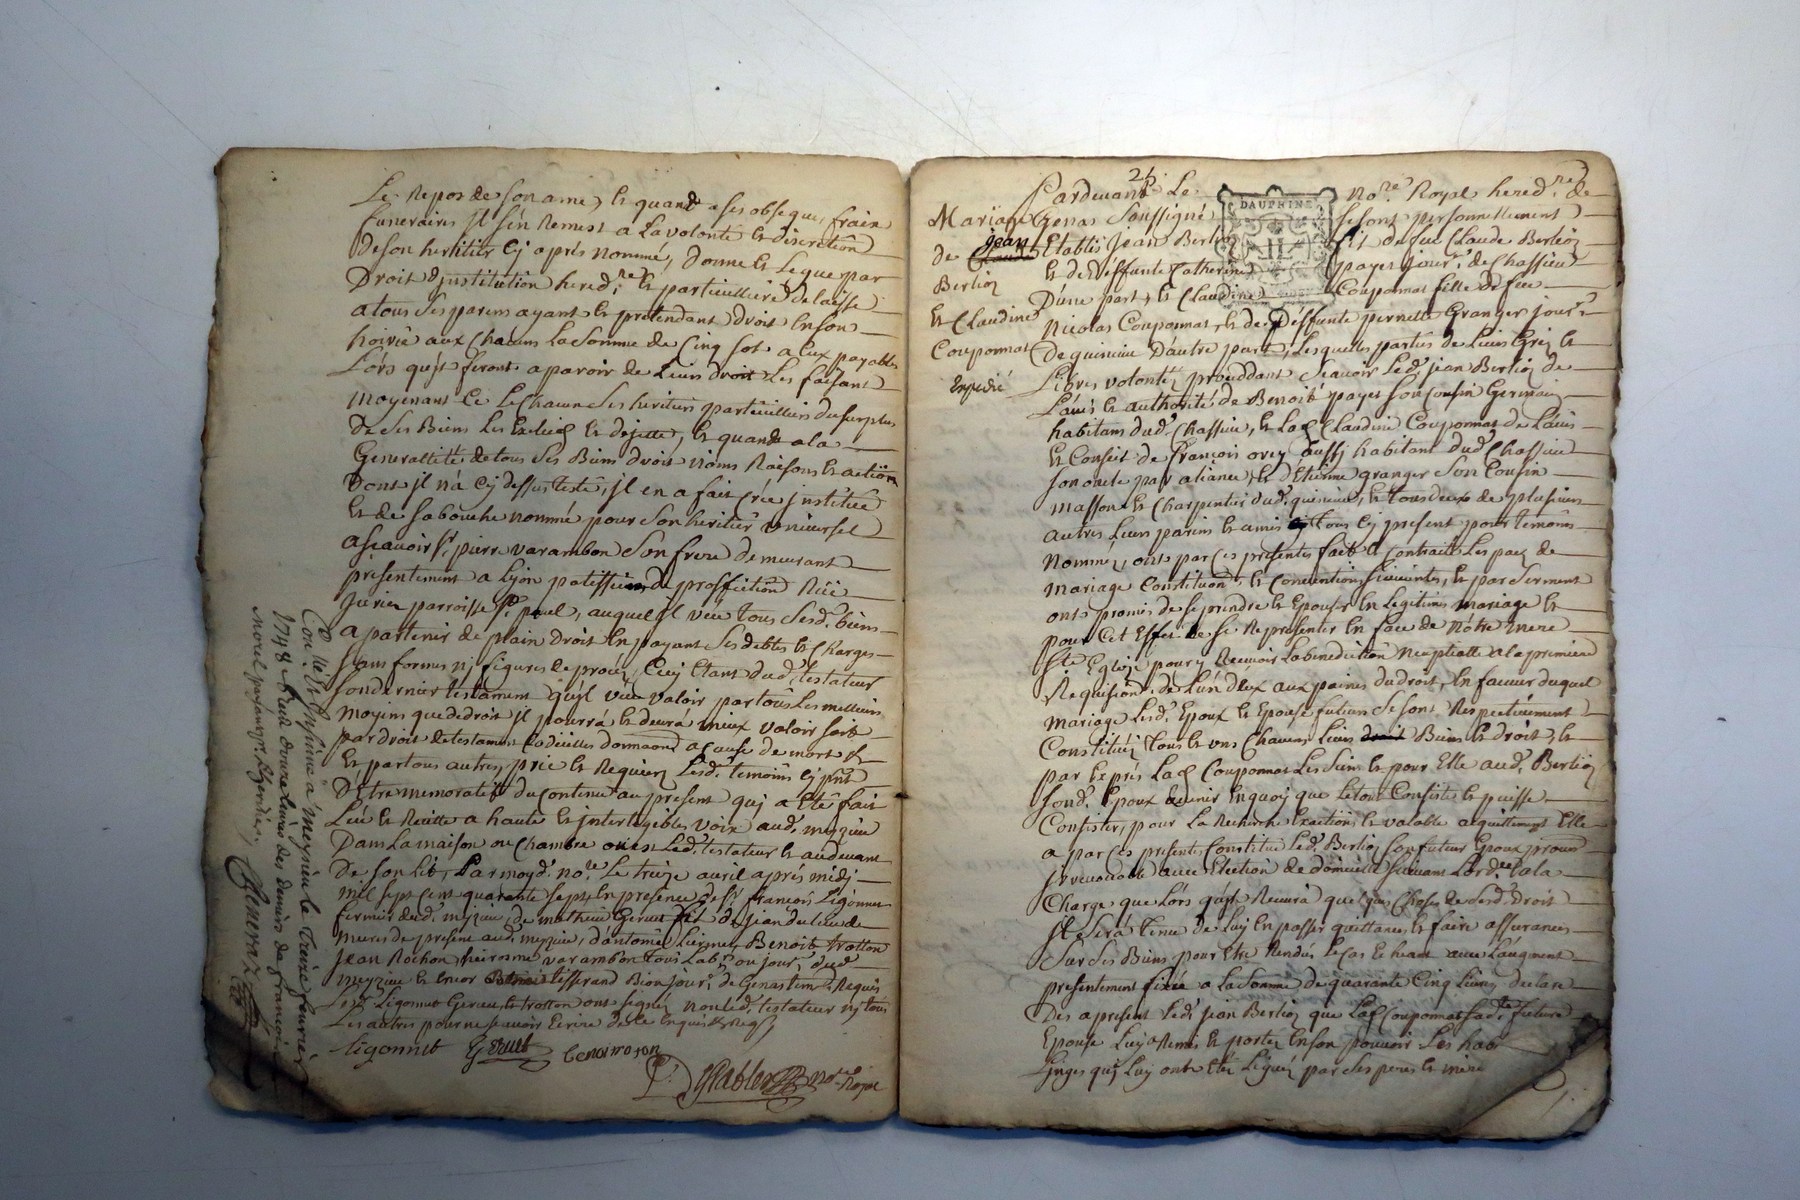 Le Repos de son ame, et quand a ses obseques, fraix
funeraires il s'en Remest a La volonté et discretion
de son heritier cy après nommé, donne et Legue par
Droit d'institution hered.re et particulliere delaisse
a tous ses parens ayant et pretendant droit en son
hoirie aux chacuns la somme de Cinq sol a Eux payables
Lors qu'ils feront aparoir de Leurs droit Les faisant
moyenant ce Le chacun ses heritiers particulliers du surplus
de ses Biens Les Exclud et dejette, et quand a la
Generallité de tous ses Biens droit noms Raisons et action
Dont il n'a cy dessus testé, il en a fait Crée institué
et de sa bouche nommé pour son heritier universel
a scavoir sr. pierre varambon son frere demeurant
presentement a Lyon patissier de proffection Rüe
juerie parroisse st. paul, auquel il veu tous sesd. biens
apartenir de plain Droit En payant ses debtes et charges
sans formes ny figures de procez, Cecy Etant dud. testateur
son dernier testament qu'il veu valoir par tous Les meilleurs
moyens que de droit il pourra et devra mieux valoir soit
par droit de testament Codicilles donnaon a cause de mort
Et par tous autres, prie et Requiers Lesd. temoins cy pnt
D'Etre memoratifs du contenu au present qui a Eté fait
Leu et Recitté a haute et intelegibles voix aud. meyzieu
Dans La maison ou chambre ou est Led. testateur et au devant
De son lit, Par moyd. no.re Le treize avril après midi
mil sept cent quarante sept En presence de sr. françois Ligonnet
fermier dud. meyzieu, de mathieu Geruet fils de jean du lieu de
mures de presens aud. meyzieu, d'antoine Liermet, Benoit trotton
jean Rochon, heirosme varambon tous Lab.r ou jour. dud.
meyzieu et tisserand Bion jour. de Genas tem. Requis
Lesd. Ligonnet Geruet, et trotton ont signés non led. testateur ny tous
Les autres pour ne scavoir Ecrire de ce Enquis et Req.
Ligonnet Geruet benoit troton
no.re Royal
Con.lé et Insinué a meyzieu le treize fevrier
1748 Receu douze livres des deniers de francois
morel par sr. Generaz
24
Pardevant Le no.re Royal hered.re de
Mariage Genas soussigné se sont personnellement
de Claude jean Etablis jean Berlioz fils de feu Claude Berlioz
Berlioz et de deffunte Catherine payes jour. de Chassieu
D'une part, et Claudine Couponnat fille de feu
et Claudine Nicolas Couponnat, et de Deffunte pernette Granger jour.
Couponnat de quincieu D'autre part, Lesquelles parties de Leurs Grez et
Expedié Libres volontez proceddant scavoir Led. jean Berlioz de
L'avis et authorité de Benoit payes son cousin Germain
habitant dud. Chassieu, et Lad. Claudine Couponnat de L'avis
et Conseil de François orcy aussy habitant dud. Chassieu
son oncle par aliance, et d'Etienne granger son Cousin
masson et Charpentier dud. quincieu, et tous deux de plusieurs
autres Leurs parens et amis tous cy present pour temoins
nommez, ont par ces presentes fait et contraité Les pacz de
mariage Constitution et Conventions suivantes, et par serment
ont promis de se prendre et Epouser en Legitimes mariage et
pour cet Effet de se Representer En face de Nôtre mere
ste Eglize pour y Recevoir La benediction Nuptialle a la premiere
Requisiõn de L'un d'eux aux peines du droit, En faveur duquel
mariage Lesd. Epoux et Epouse futeurs se sont Respectivement
Constitués tous et uns Chacuns Leurs droit Biens et droit, et
par Exprés Lad. Couponnat Les siens et pour Elle aud. Berlioz
sond. Epoux avenir En quoy que Le tout Consiste et puisse
Consister, pour La Recherche Exaction, et valable acquittement Elle
a par ces presentes Constitue Led. Berlioz son futeur Epoux procur.
irrevocable avec Election de domicille suivant L'ord.ce a la
Charge que Lors qu'il Recevra quelques Choses de sesd. Droit
il sera tenu de Luy En passer quittance, et faire assurance
sur ses Biens pour Etre Rendus Le cas Echeant avec L'augment
presentement fixée a La somme de quarante Cinq Livres declare
Des a present Led. jean Berlioz que Lad. Couponnat sad. future
Epouse Luy a Remis et porter En son pouvoir Les
Linges qui Luy ont Eté Legués par ses pere et mere
DAUPHINE